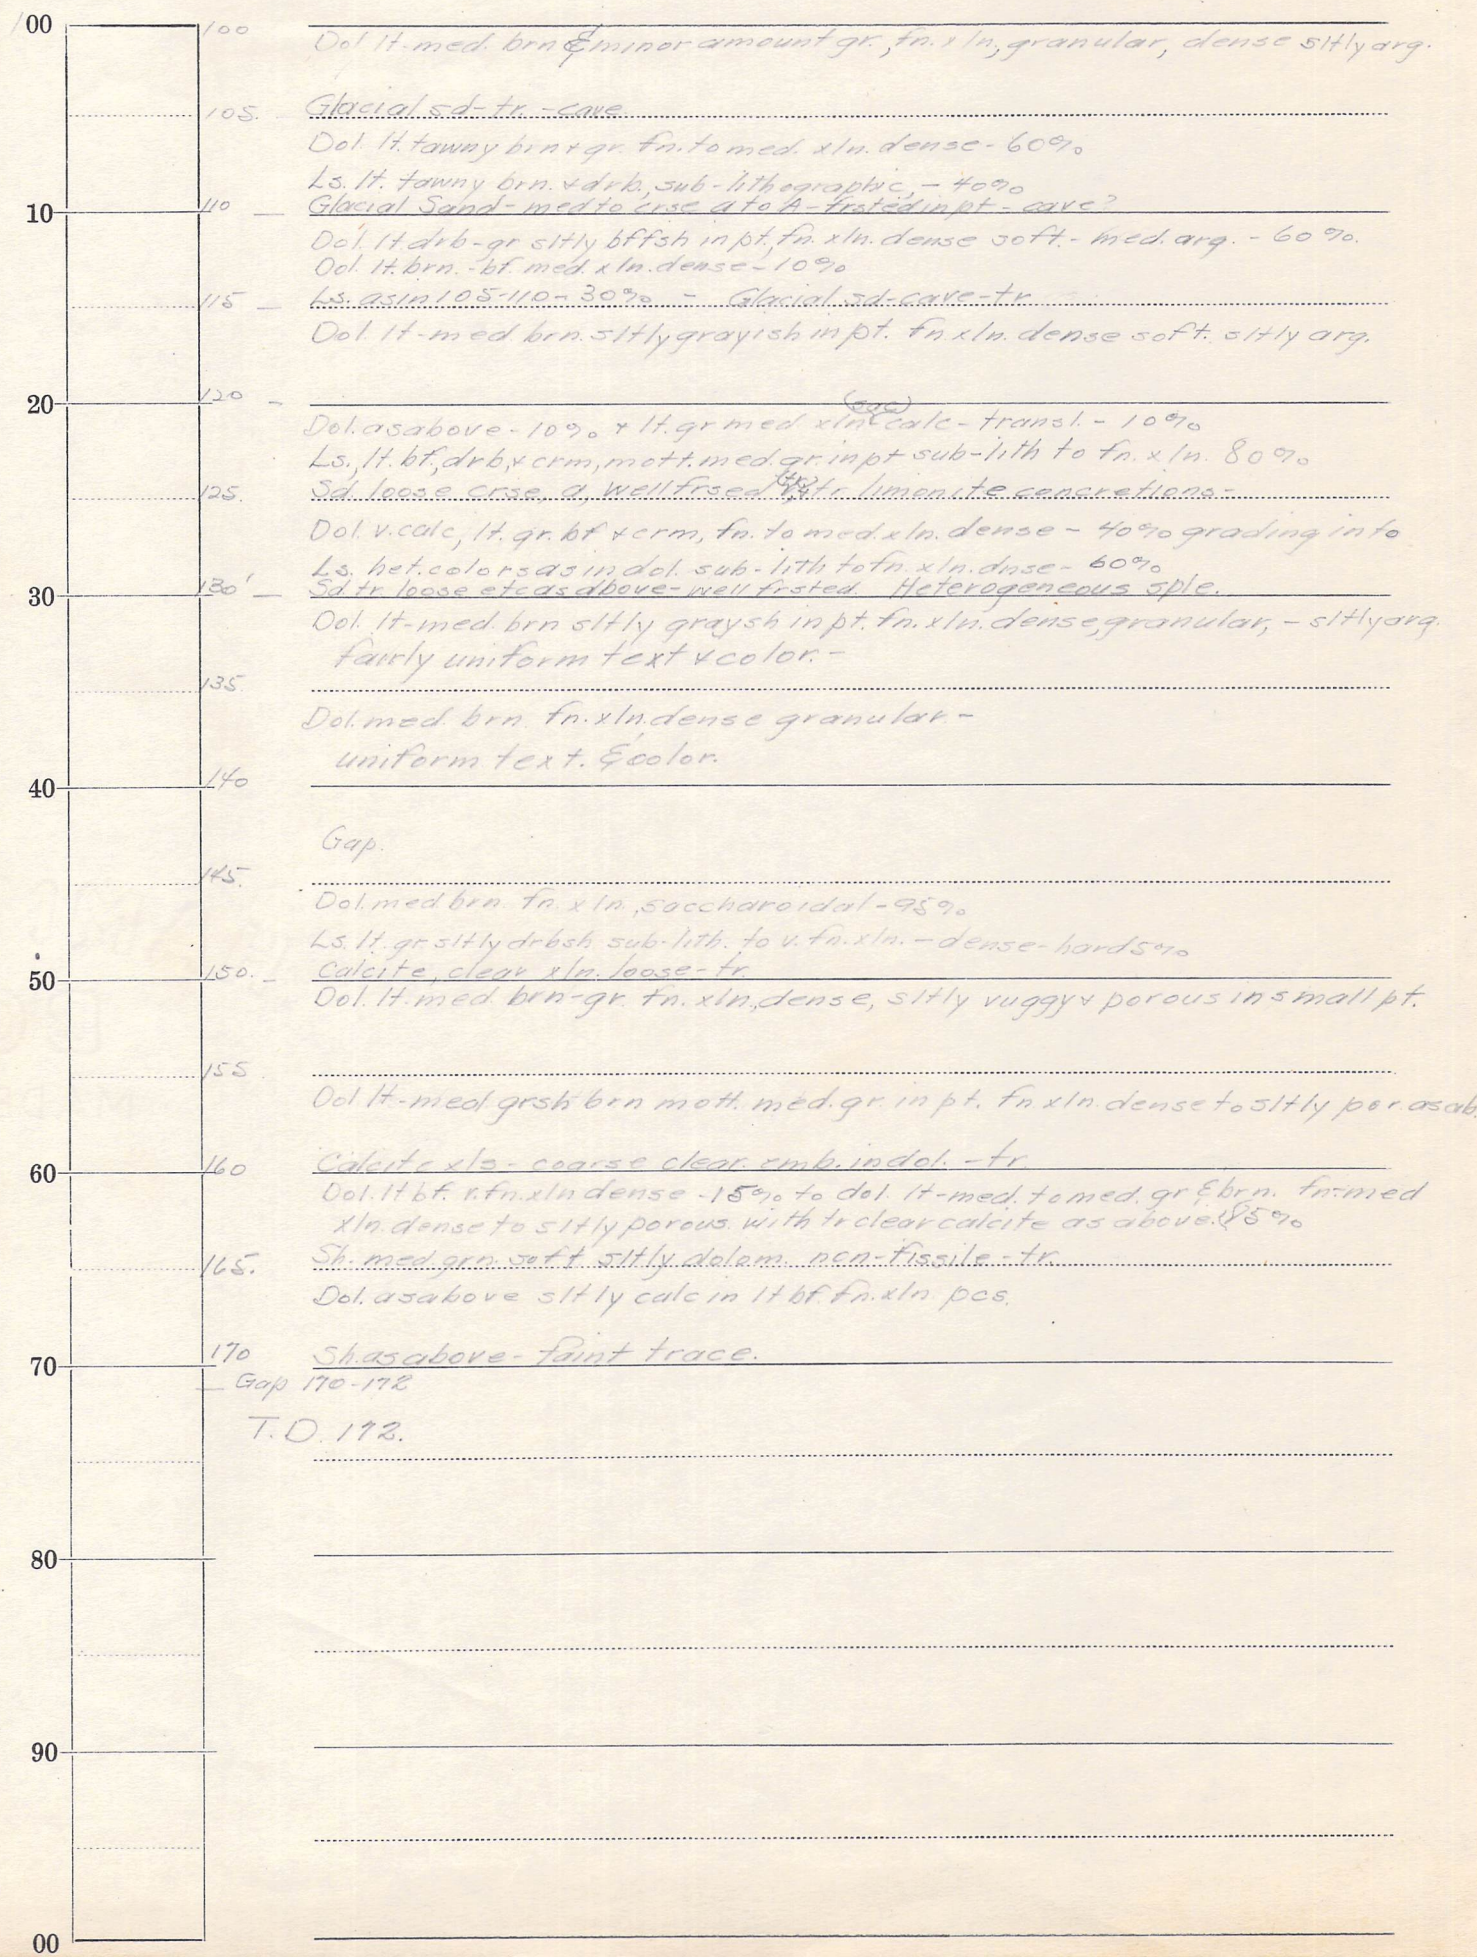 100 100
Dol. lt-med. brn & minor amount gr., fn. xln, granular, dense sltly arg.
105. Glacial sd-tr.-cave
Dol. lt. tawny brn + gr. fn. to med. xln. dense - 60%
Ls. lt. tawny brn. + drb., sub-lithographic, - 40%
10 110 Glacial Sand - med to crse a to A - frsted in pt - cave?
Dol. lt. drb-gr sltly bffsh in pt, fn. xln. dense soft. - med. arg. - 60%.
Dol. lt. brn. - bf. med. xln. dense - 10%
115 Ls. as in 105-110 - 30% - Glacial sd-cave-tr.
Dol. lt-med brn. sltly grayish in pt. fn xln. dense soft. sltly arg.
20 120
(sac)
Dol. as above - 10% + lt. gr med xln calc - transl. - 10%
Ls., lt. bf, drb, + crm, mott. med. gr. in pt sub-lith to fn. xln. 80%
125. Sd. loose crse, a, well frsed tr. limonite concretions -
Dol. v. calc, lt. gr. bf + crm, fn. to med. xln. dense - 40% grading into
Ls. het. colors as in dol. sub-lith to fn. xln. dnse - 60%
30 130' Sd. tr. loose etc as above - well frsted. Heterogeneous sple.
Dol. lt-med. brn sltly graysh in pt. fn. xln. dense, granular, - sltly arg.
fairly uniform text + color. -
135
Dol. med. brn. fn. xln, dense granular. -
uniform text. & color.
40 140
Gap.
145.
Dol. med brn. fn. xln, saccharoidal - 95%
Ls. lt. gr. sltly drbsh sub-lith. to v. fn. xln. - dense - hard 5%
50 150. Calcite, clear xln. loose - tr.
Dol. lt. med. brn-gr. fn. xln, dense, sltly vuggy + porous in small pt.
155
Dol lt-med grsh brn mott. med. gr. in pt. fn xln. dense to sltly por. as ab.
60 160 Calcite xls - coarse clear. emb. in dol. - tr.
Dol. lt bf. v. fn. xln dense - 15% to dol. lt-med. to med. gr & brn. fn-med
xln. dense to sltly porous. with tr clear calcite as above. 85%
165. Sh. med grn. soft sltly dolom. non-fissile - tr.
Dol. as above sltly calc in lt bf. fn. xln pcs.
70 170 Sh. as above - faint trace.
Gap 170-172
T.D. 172.
80
90
00